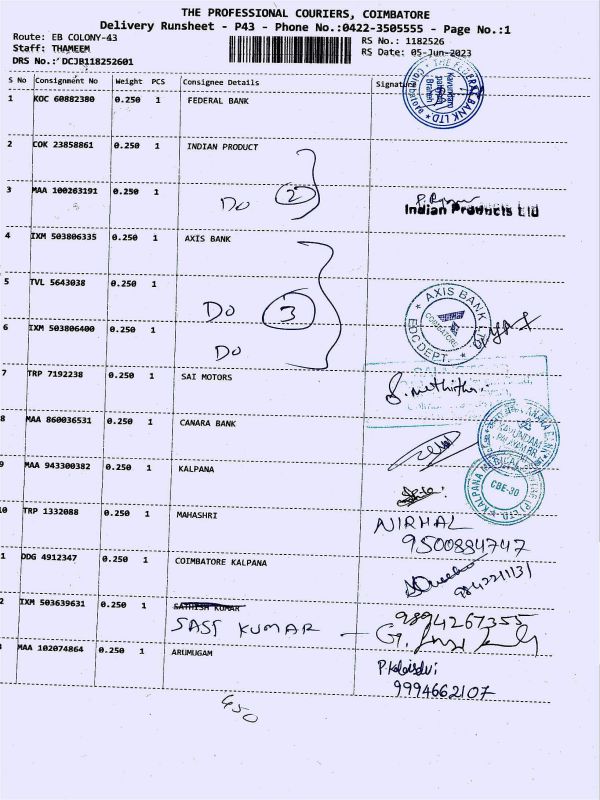 THE PROFESSIONAL COURIERS, COIMBATORE
Delivery Runsheet - P43 - Phone No.:0422-3505555 - Page No.:1
Route: EB COLONY-43
RS No.: 1182526
Staff: THAMEEM
RS Date: 05-Jun-2023
DRS No.: DCJB118252601
S No Consignment No Weight PCS Consignee Details Signatu
1 KOC 60882380 0.250 1 FEDERAL BANK
2 COK 23858861 0.250 1 INDIAN PRODUCT
3 MAA 100263191 0.250 1 Do 2 Indian Products Ltd
4 IXM 503806335 0.250 1 AXIS BANK
5 TVL 5643038 0.250 1 Do 3 AXIS BANK LTD COIMBATORE EDC DEPT
6 IXM 503806400 0.250 1 Do
7 TRP 7192238 0.250 1 SAI MOTORS
8 MAA 860036531 0.250 1 CANARA BANK
9 MAA 943300382 0.250 1 KALPANA CBE-30
10 TRP 1332088 0.250 1 MAHASHRI NIRMAL
9500884747
1 DDG 4912347 0.250 1 COIMBATORE KALPANA
9842211131
2 IXM 503639631 0.250 1 SATHISH KUMAR 9894267355
SASI KUMAR
MAA 102074864 0.250 1 ARUMUGAM P.Kalaiselvi
9994662107
450